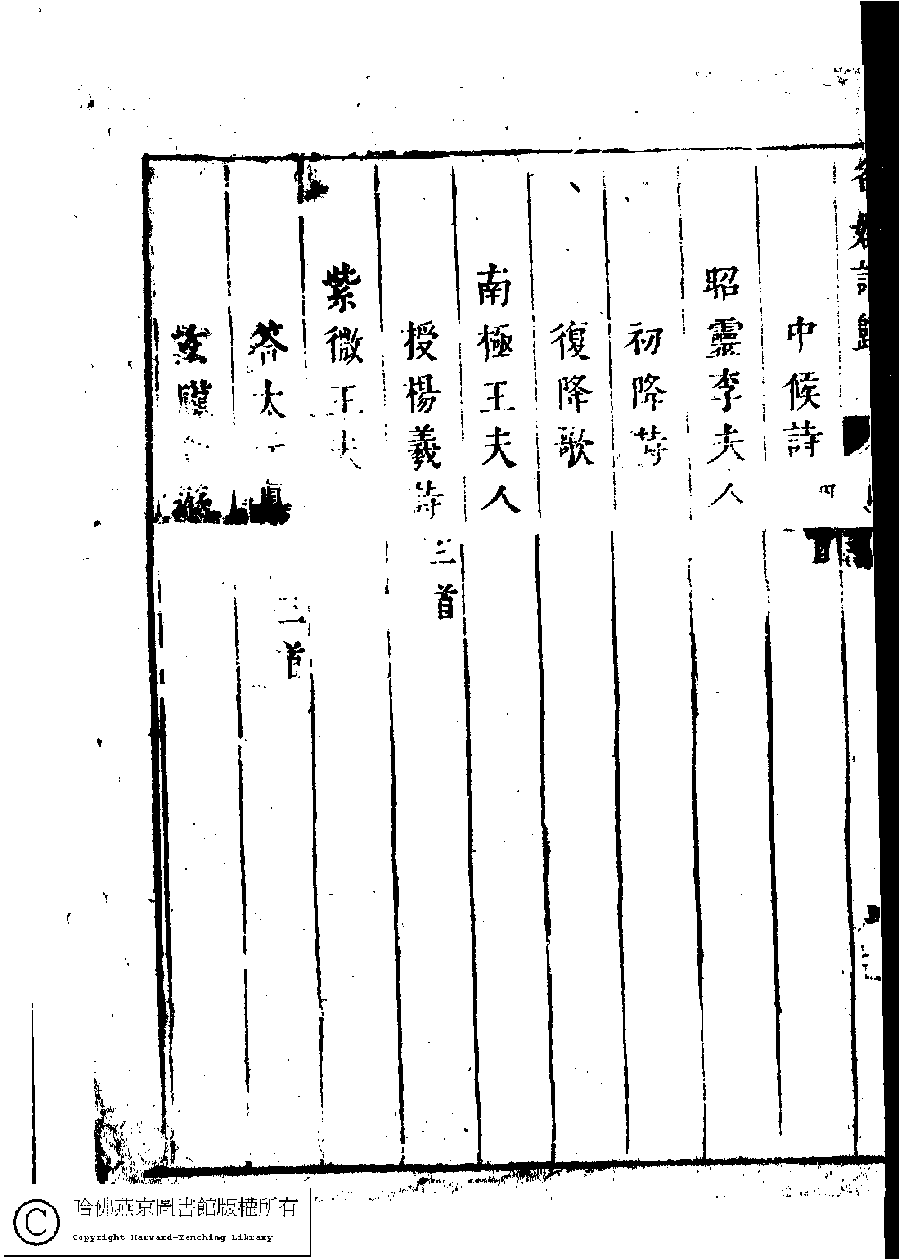 名媛詩歸
中候詩
四首
昭靈李夫人
初降詩
復降歌
南極王夫人
授楊羲詩
三首
紫微王夫
答太
真
二首
哈佛燕京圖書館版權所有
Copyright Harvard-Yenching Library